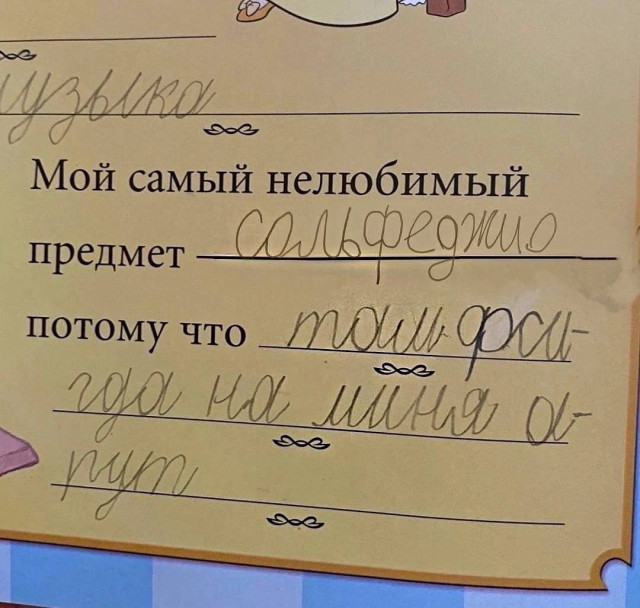 узыка
Мой самый нелюбимый
предмет сольфеджио
потому что там фси-
гда на миня а-
рут